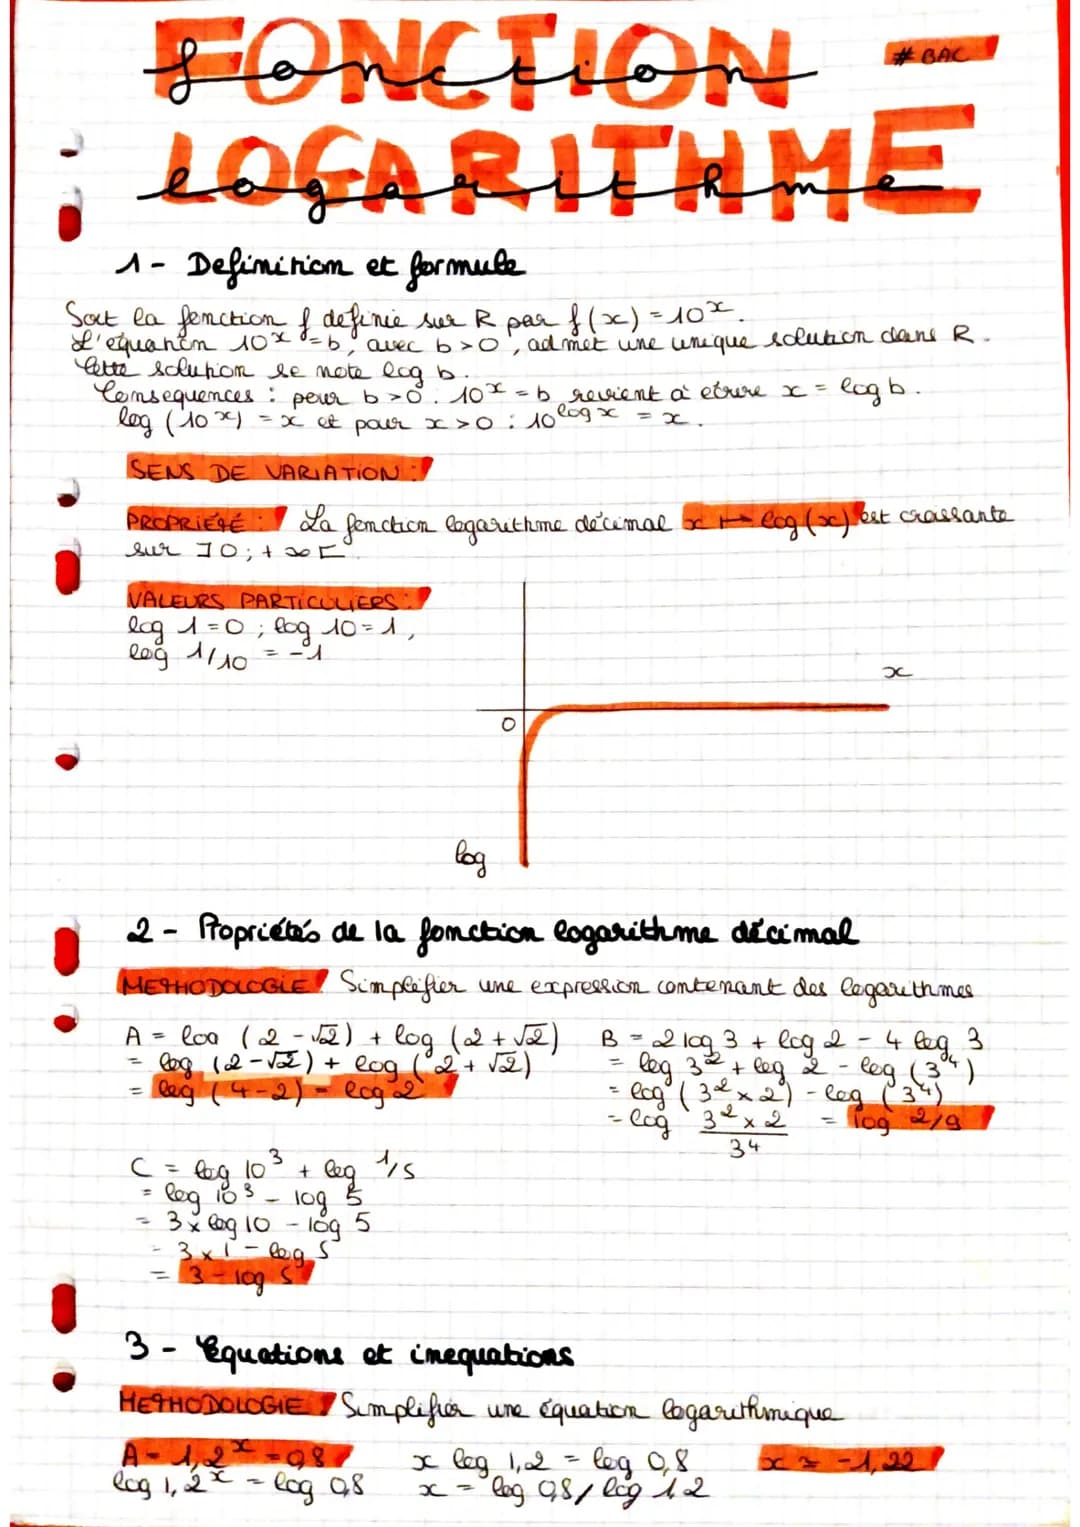 FONCTION
fonction
# BAC
LOGARITHME
logarithme
1 - Definition et formule
Soit la fonction f definie sur R par f(x) = 10^x.
L'equation 10^x = b, avec b > 0, admet une unique solution dans R.
Cette solution se note log b.
Consequences : pour b > 0 : 10^x = b revient à ecrire x = log b.
log (10^x) = x et pour x > 0 : 10^log x = x.
SENS DE VARIATION :
PROPRIETÉ : La fonction logarithme décimal x ↦ log(x) est croissante
sur ]0; +∞[
VALEURS PARTICULIERS :
log 1 = 0 ; log 10 = 1,
log 1/10 = -1
x
0
log
2 - Propriétés de la fonction logarithme décimal
METHODOLOGIE Simplifier une expression contenant des logarithmes
A = log (2 - √2) + log (2 + √2)
= log (2 - √2) + log (2 + √2)
= log (4 - 2) = log 2
B = 2 log 3 + log 2 - 4 log 3
= log 3² + log 2 - log (3⁴)
= log (3² x 2) - log (3⁴)
= log 3² x 2 / 3⁴ = log 2/9
C = log 10³ + log 1/5
= log 10³ - log 5
= 3 x log 10 - log 5
= 3 x 1 - log 5
= 3 - log 5
3 - Equations et inequations
METHODOLOGIE Simplifier une équation logarithmique
A = 1,2^x = 0,8
log 1,2^x = log 0,8
x log 1,2 = log 0,8
x = log 0,8 / log 1,2
x ≈ -1,22